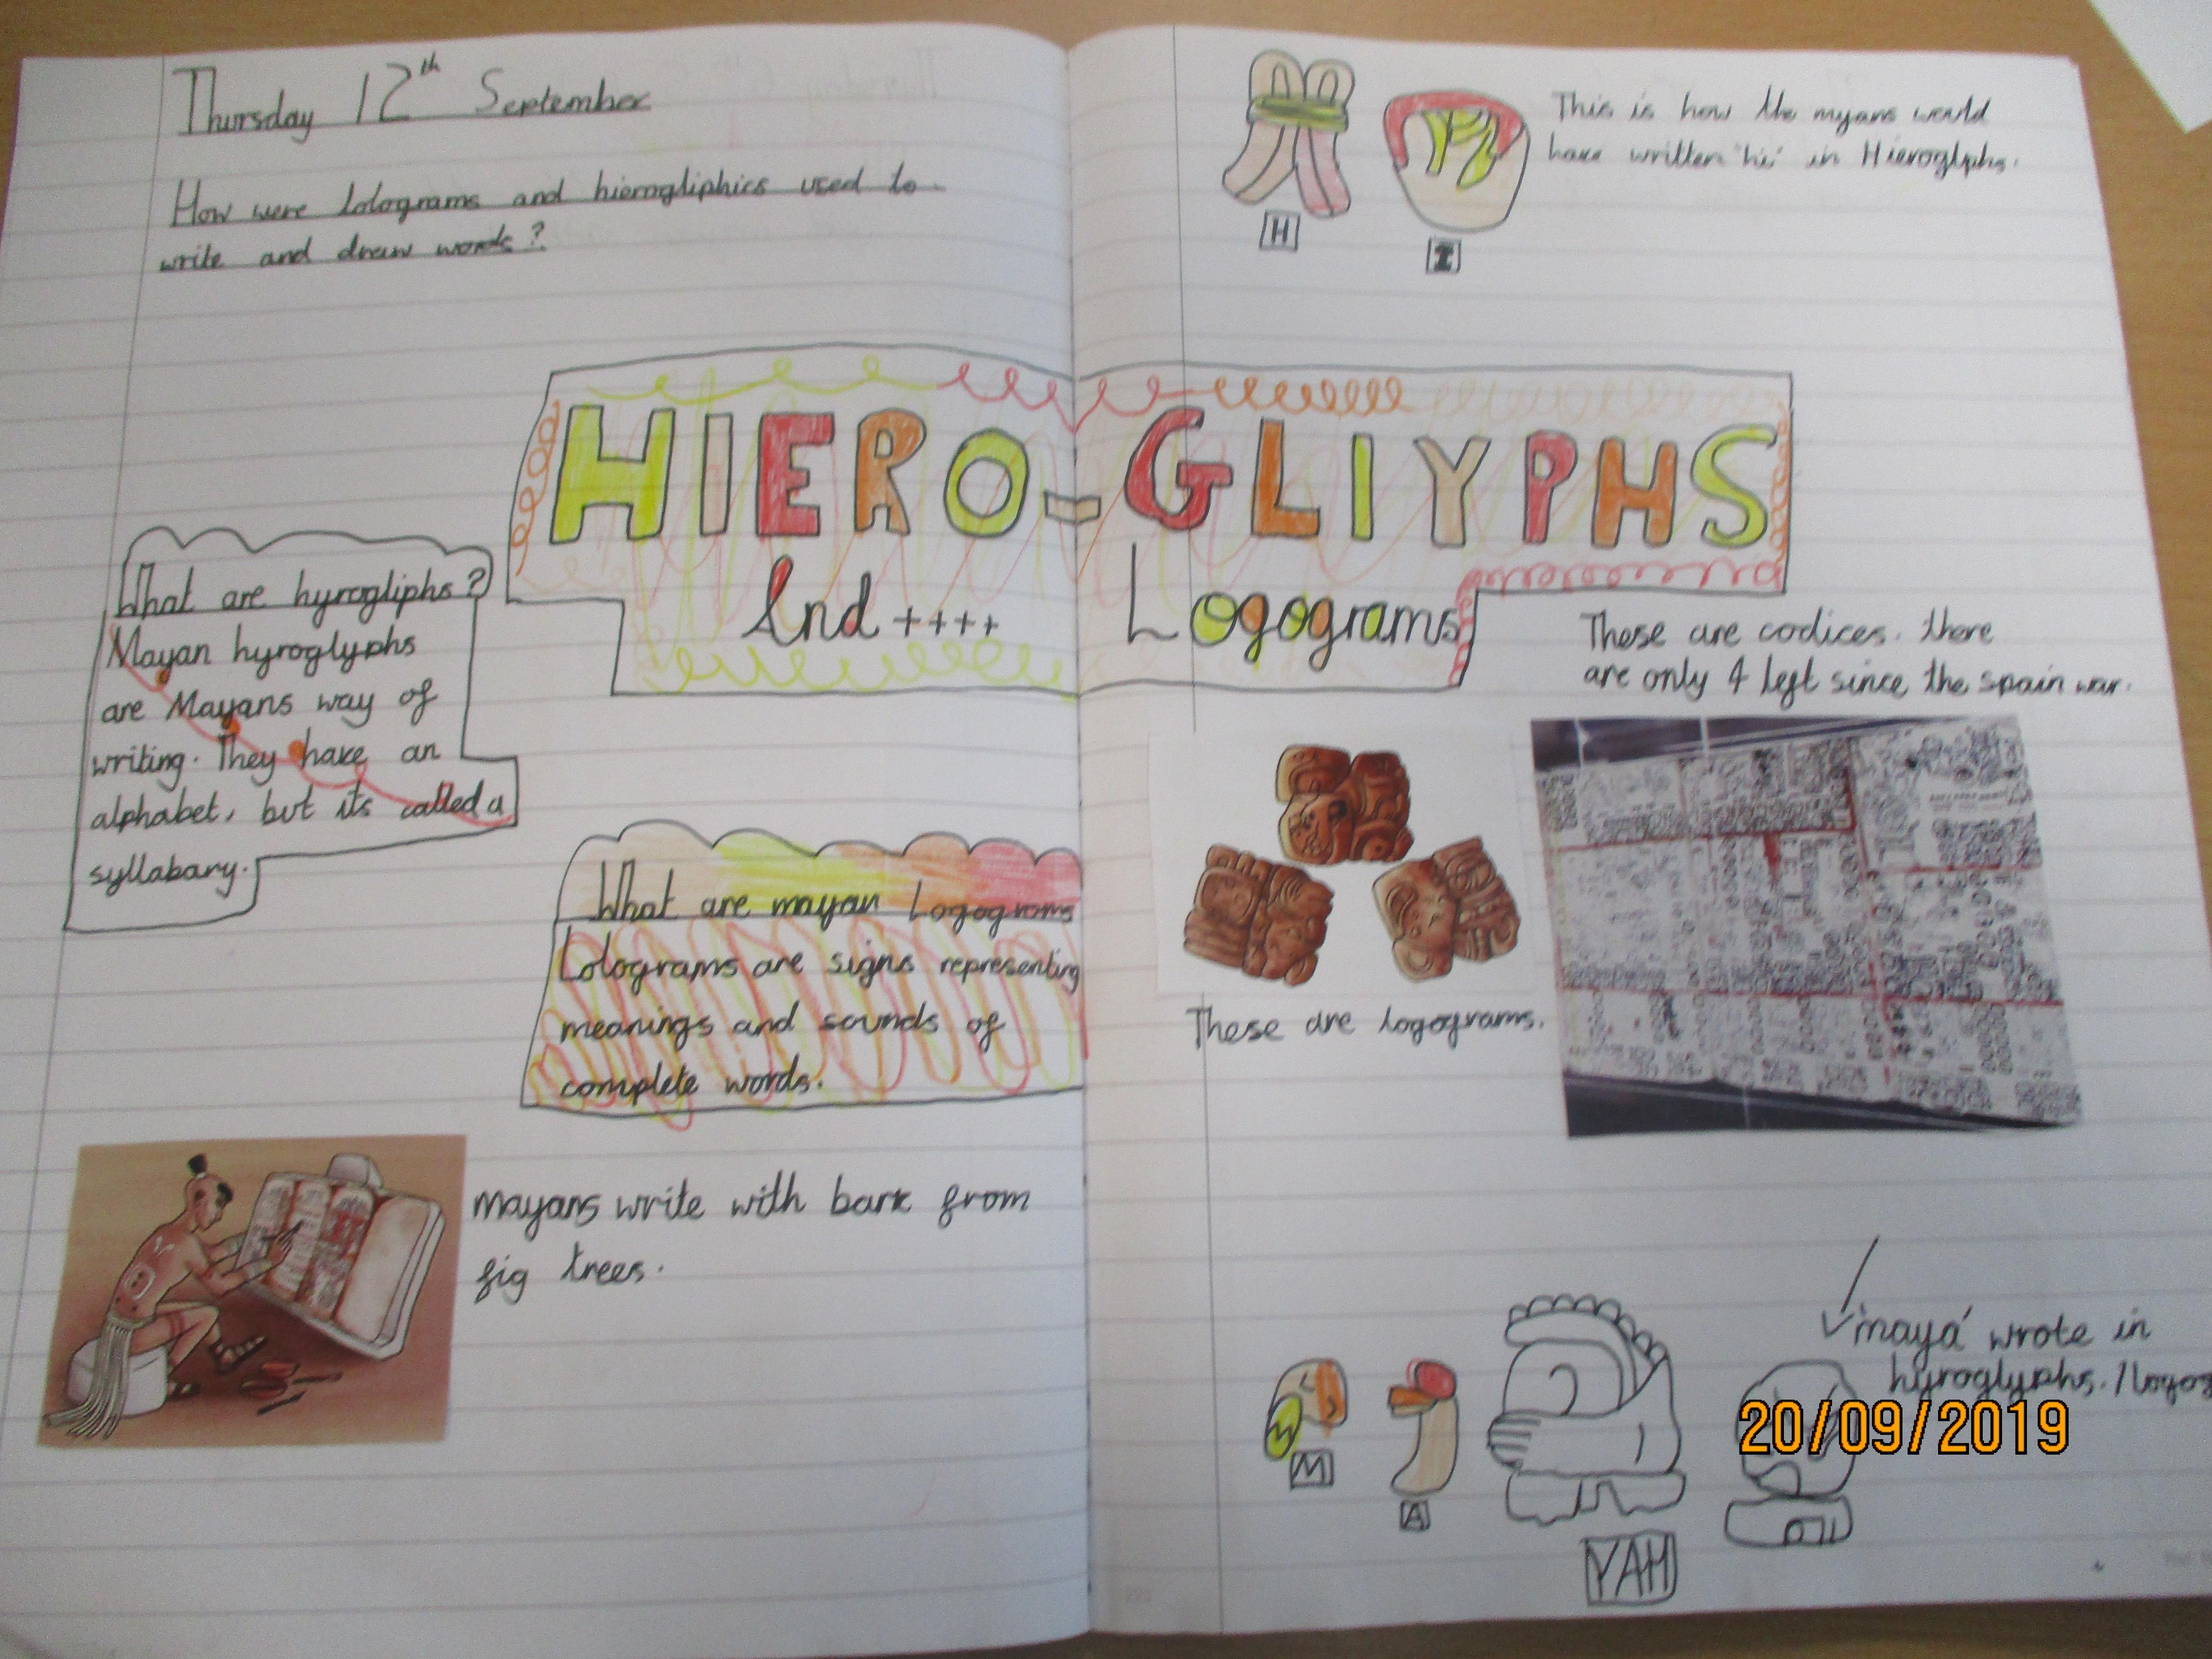 Thursday 12th September
How were lolograms and hierogliphics used to
write and draw words?
HIERO-GLIYPHS
And ++++ Logograms
What are hyrogliphs?
Mayan hyroglyphs
are Mayans way of
writing. They have an
alphabet, but its called a
syllabary.
What are mayan Logograms
Lolograms are signs representing
meanings and sounds of
complete words.
Mayans write with bark from
fig trees.
This is how the myans would
have written 'hi' in Hieroglphs.
H
I
These are codices. there
are only 4 left since the spain war.
These are logograms.
'maya' wrote in
hyroglyphs. / logog
M
A
YAH
20/09/2019